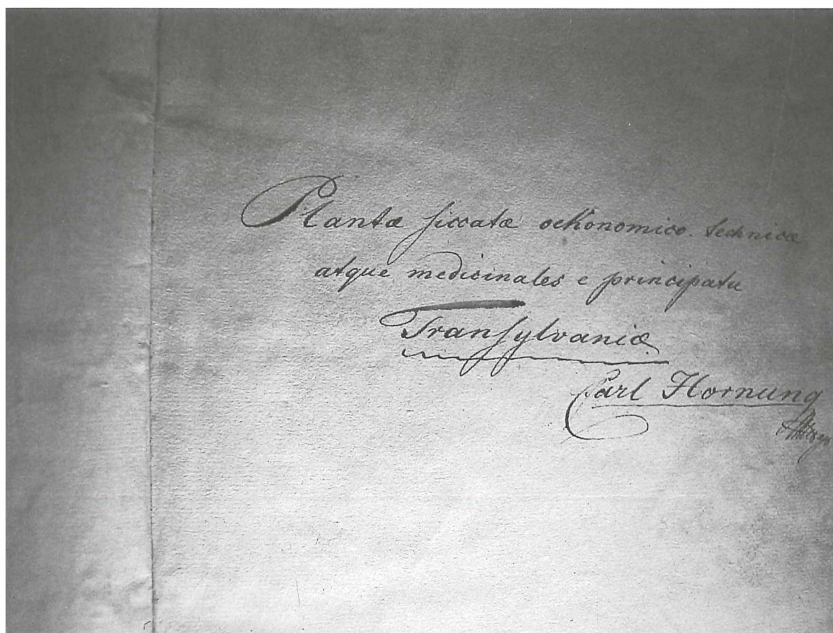 Plantæ ſiccatæ oekonomico. technicæ
atque medicinales e principatu
Tranſylvaniæ
Carl Hornung